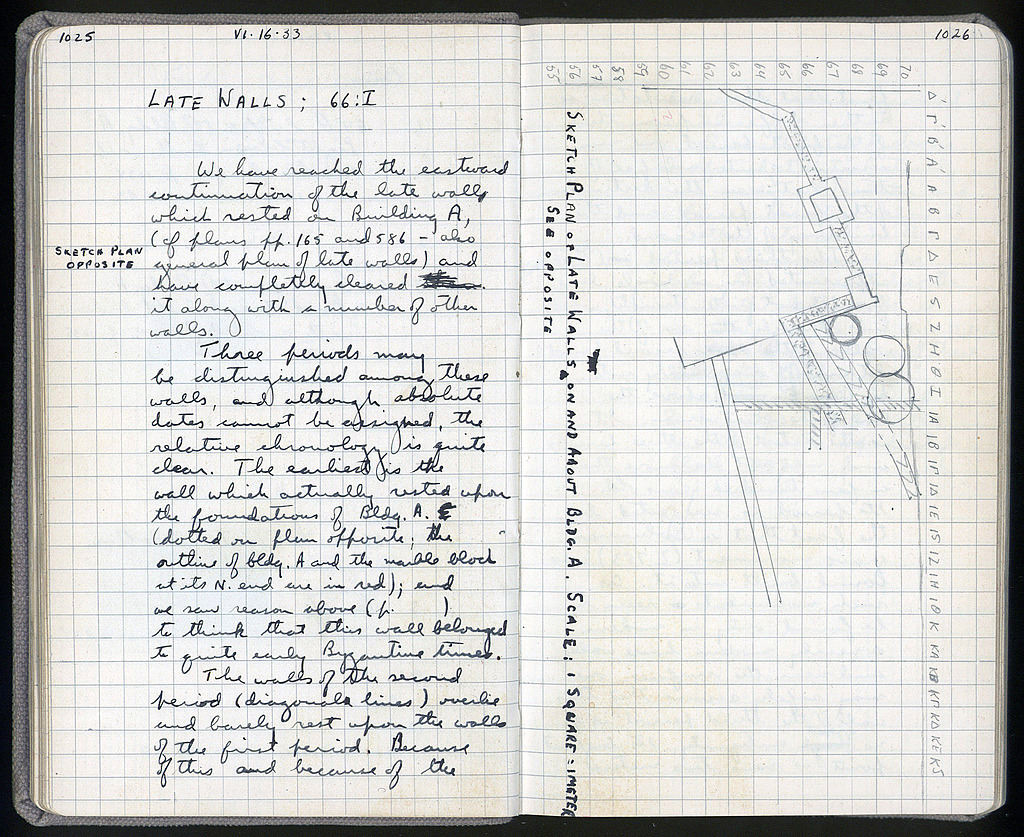 1025
VI·16·33
LATE WALLS ; 66:I
We have reached the eastward
continuation of the late walls
which rested on Building A,
(cf plans pp. 165 and 586 – also
general plan of late walls) and
have completely cleared
it along with a number of other
walls.
SKETCH PLAN
OPPOSITE
Three periods may
be distinguished among these
walls, and although absolute
dates cannot be assigned, the
relative chronology is quite
clear. The earliest is the
wall which actually rested upon
the foundations of Bldg. A.
(dotted on plan opposite; the
outline of bldg. A and the marble block
at its N. end are in red); and
we saw reason above (p. )
to think that this wall belonged
to quite early Byzantine times.
The walls of the second
period (diagonal lines) overlie
and barely rest upon the walls
of the first period. Because
of this and because of the
1026
SKETCH PLAN OF LATE WALLS ON AND ABOUT BLDG. A. SCALE: 1 SQUARE = 1 METER
SEE OPPOSITE
55
56
57
58
59
60
61
62
63
64
65
66
67
68
69
70
Δ' Γ' Β' Α' Α Β Γ Δ Ε S Z H Θ I IA IB IΓ IΔ IE IS IZ IH IΘ K KA KB KΓ KΔ KE KS